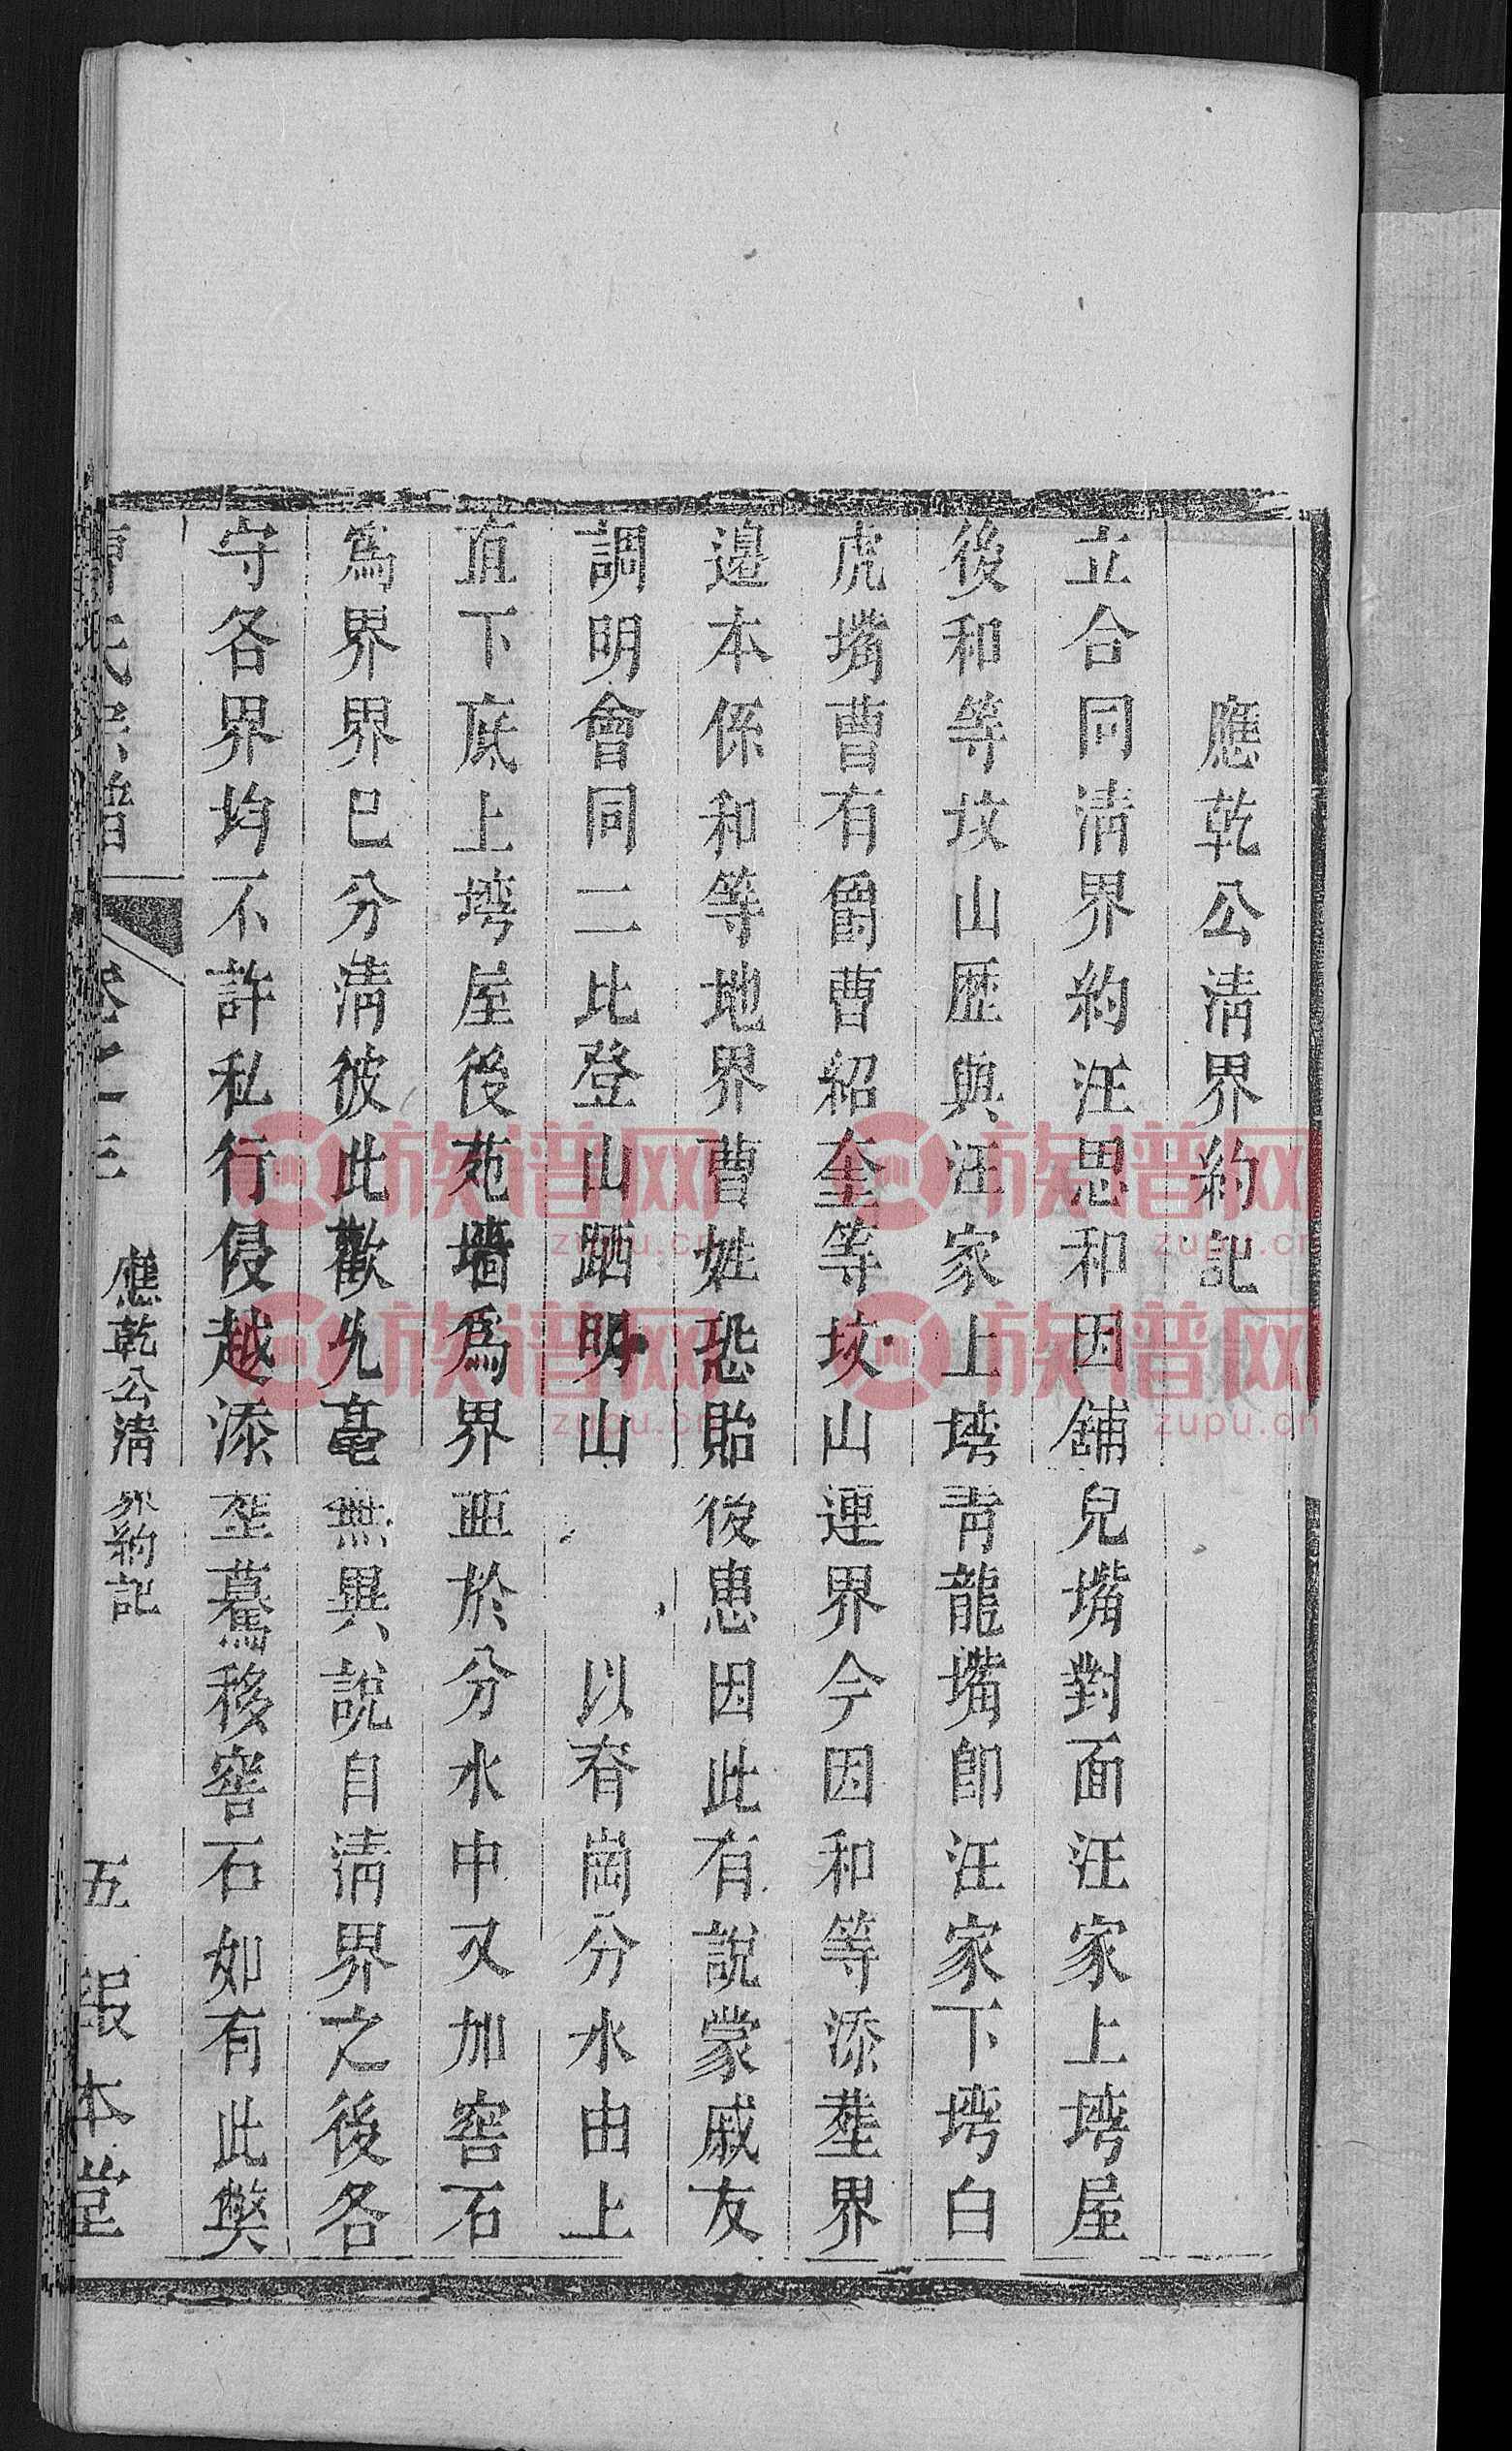 應乾公清界約記
立合同清界約汪思和因舖兒嘴對面汪家上塆屋
後和等坟山歷與汪家上塆青龍嘴即汪家下塆白
虎嘴曹有爵曹紹奎等坟山連界今因和等添塟界
邉本係和等地界曹姓恐貽後患因此有説蒙戚友
調明會同二比登山跴明山　以脊崗分水由上
直下底上塆屋後苑墻爲界並於分水中又加窖石
爲界界已分清彼此歡允毫無異說自清界之後各
守各界均不許私行侵越添塟驀移窖石如有此獘
曹氏宗譜　卷之三　應乾公清界約記　五　報本堂
族谱网
zupu.cn
族谱网
zupu.cn
族谱网
zupu.cn
族谱网
zupu.cn